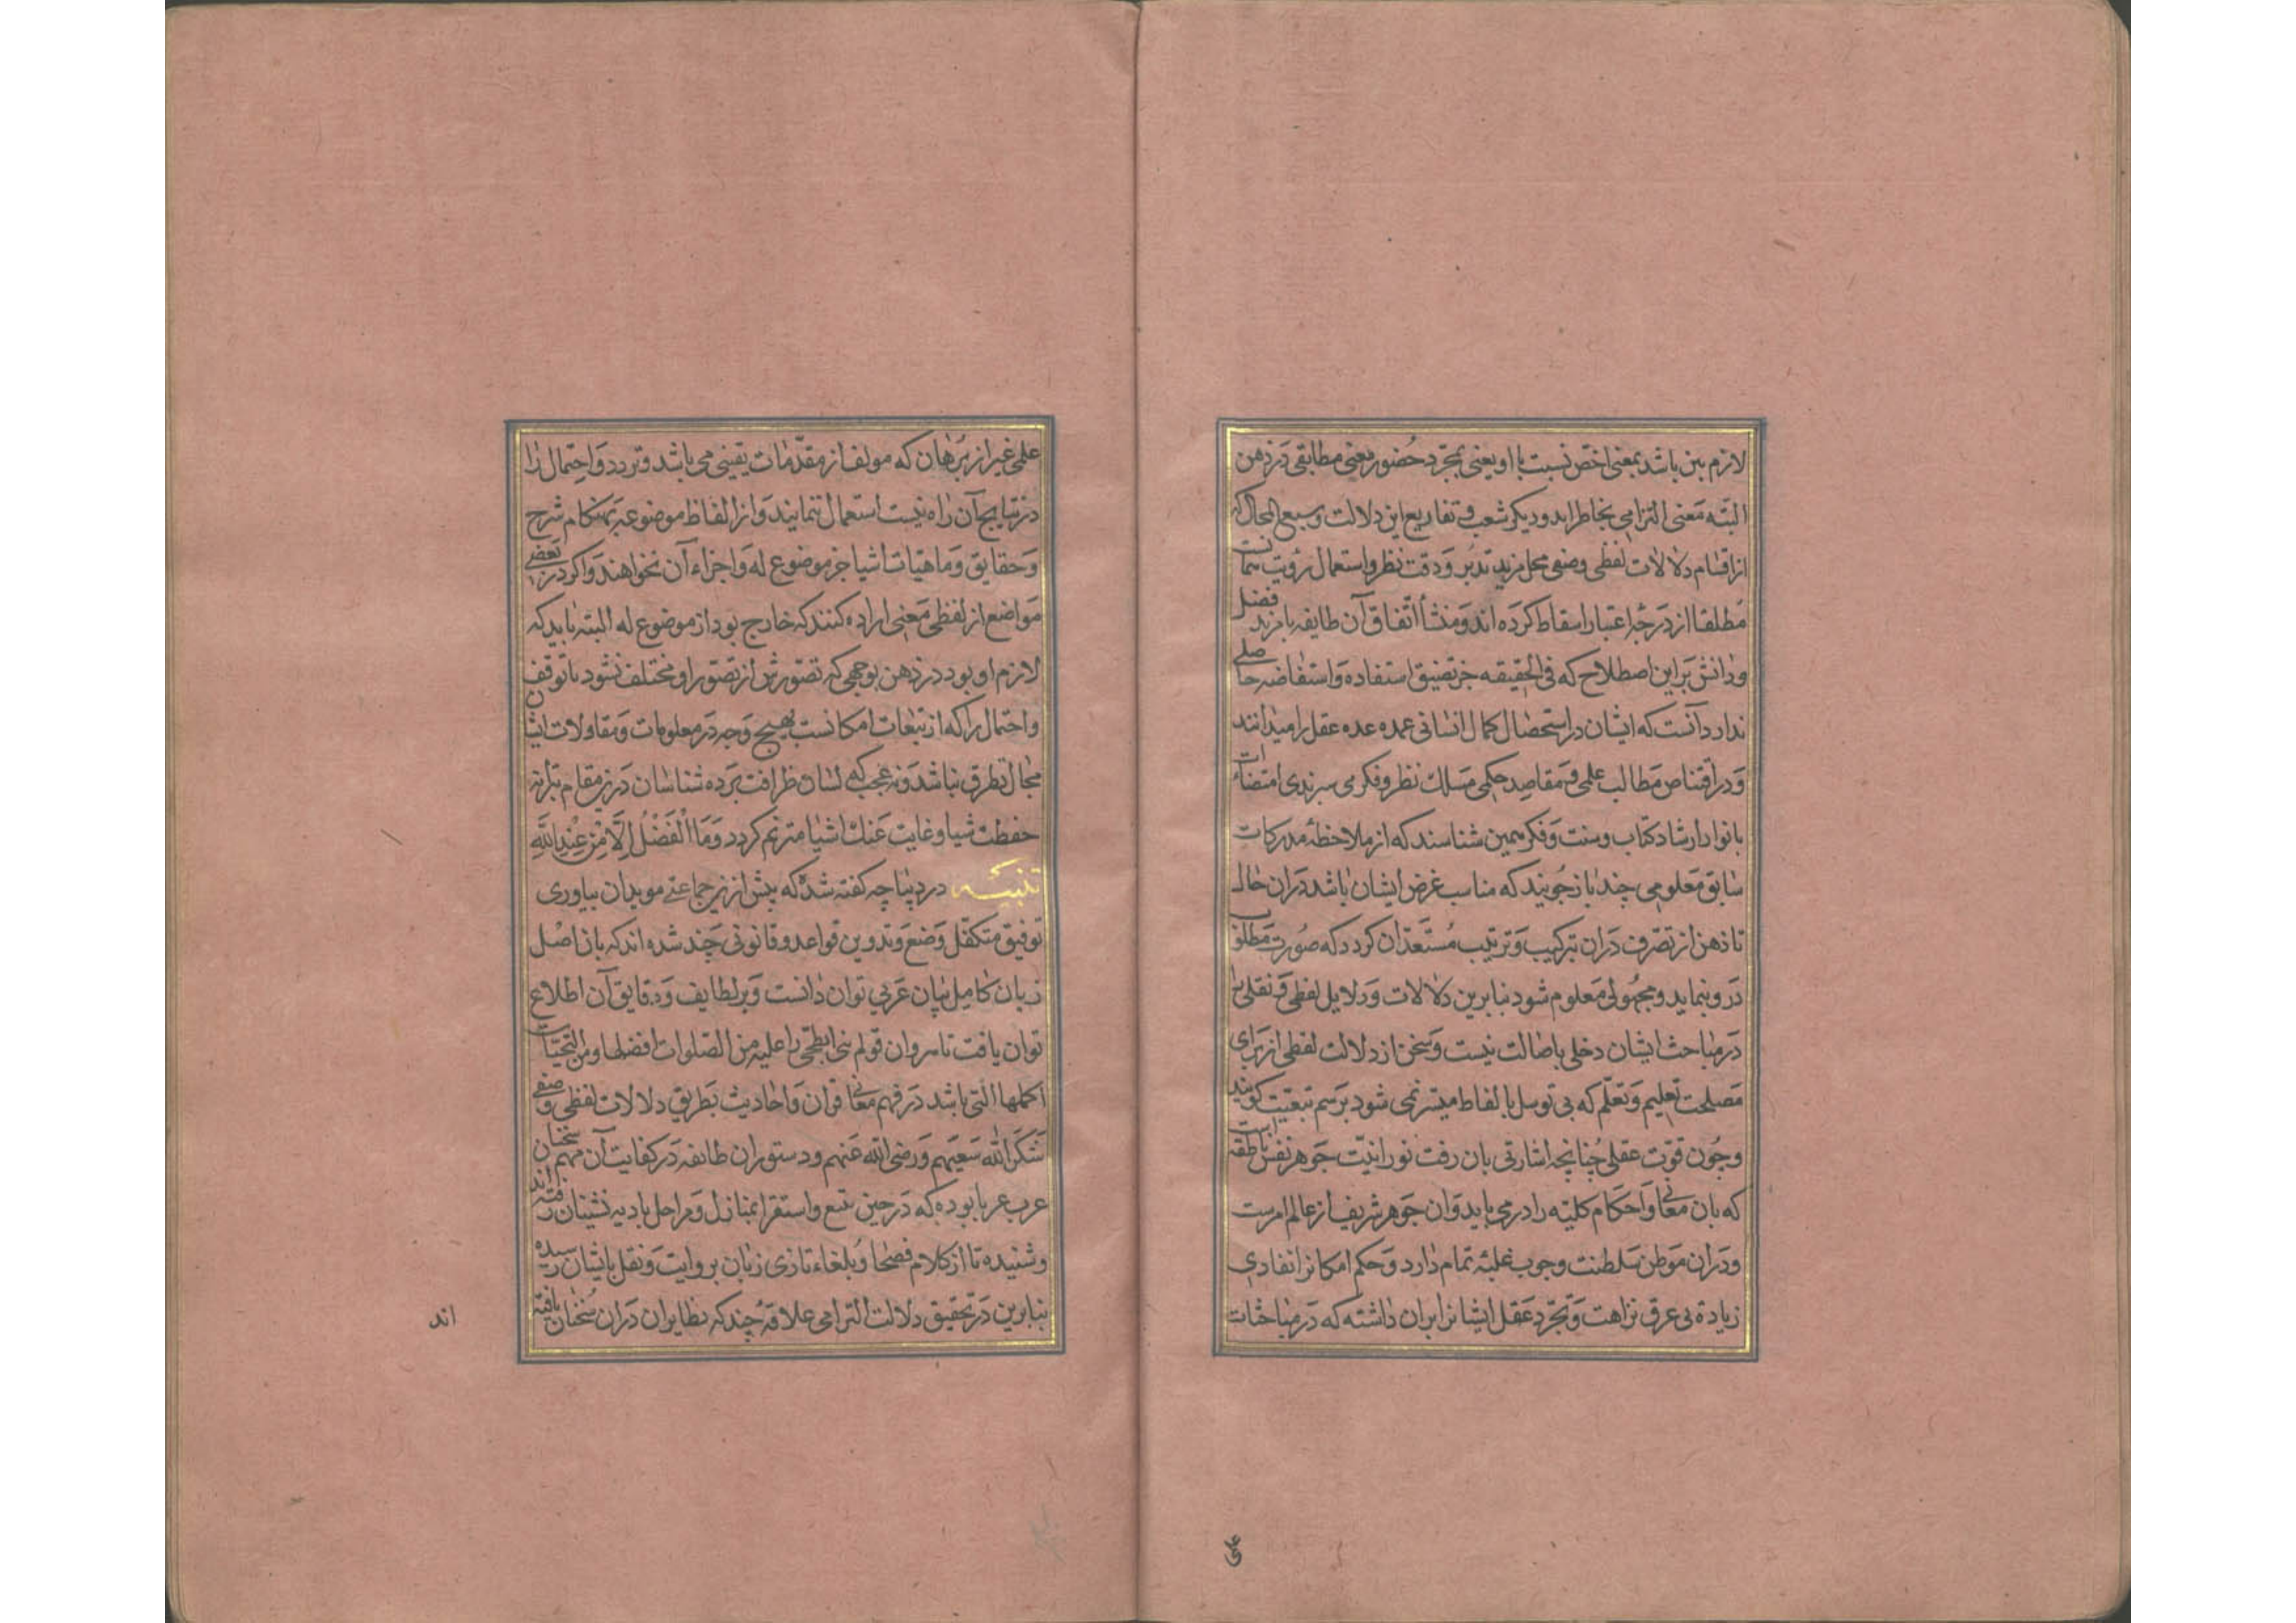 لازم بین باشد بمعنی اخص نسبت با او یعنی بمجرد حضور معنی مطابقی در ذهن
البته معنی التزامی بخاطر اید و دیکر شعب و تفاریع این دلالت وسیع المجال که
از اقسام دلالات لفظی وضعی محل مزید تدبر و دقت نظر و استعمال رؤیت
مطلقا از درجه اعتبار اسقاط کرده اند و منشأ اتفاق آن طایفه با مزید فضل
و دانش بر این اصطلاح که فی الحقیقه جز تضییق استفاده و استفاضه حاصلی
ندارد آنست که ایشان در استحصال کمال انسانی عمده عده عقل را میدانند
و در اقتناص مطالب علمی و مقاصد حکمی مسلك نظر و فکر می سپرند بی استضاءات
بانوار ارشاد کتاب و سنت و فکر همین شناسند که از ملاحظه مدرکات
سابق معلومی چند باز جویند که مناسب غرض ایشان باشد دران حال
تا ذهن از تصرف دران بترکیب و ترتیب مستعد ان کردد که صورت مطلوب
در و بنماید و مجهولی معلوم شود بنابرین دلالات و دلایل لفظی و نقلی را
در مباحث ایشان دخلی باصالت نیست و سخن از دلالت لفظی از برای
مصلحت تعلیم و تعلم که بی توسل بالفاظ میسر نمی شود برسم تبعیت کویند
و چون قوت عقلی چنانچه اشارتی بان رفت نورانیت جوهر نفس ناطقه است
که بان معانی و احکام کلیه را در می یابد و ان جوهر شریف از عالم امرست
و دران موطن سلطنت وجوب غلبه تمام دارد و حکم امکانرا نفادی
زیاده نی عرق نزاهت و تجرد عقل ایشانرا بران داشته که در مباحثات
علمی غیر از برهان که مولف از مقدمات یقینی می باشد و تردد و احتمال را
در نتایج آن راه نیست استعمال ننمایند و از الفاظ موضوعه بهنکام شرح
و حقایق و ماهیات اشیا جز موضوع له و اجزاء آن نخواهند و اکر در بعضی
مواضع از لفظی معنی اراده کنند که خارج بود از موضوع له البته باید که
لازم او بود در ذهن بوجهی که تصورش از تصور او مختلف نشود تا توقف
و احتمال را که از تبعات امکانست بهیچ وجه در معلومات و مقاولات ایشان
مجال تطرق نباشد و نه عجب که لسان ظرافت برده شناسان درین مقام بترانه
حفظت شیا و غابت عنك اشیا مترنم کردد وَمَا الْفَضْلُ اِلَّا مِنْ عِنْدِ اللّٰهِ
تنبیه در دیباچه کفته شد که پیش ازین جماعتی مویدان بیاوری
توفیق متکفل وضع و تدوین قواعد و قانونی چند شده اند که بان اصل
زبان کامل بیان عربی توان دانست و بر لطایف و دقایق آن اطلاع
توان یافت تا سروان قولم نبی ابطحی را علیه من الصلوات افضلها و من التحیات
اکملها التی باشد در فهم معانی قران و احادیث بطریق دلالات لفظی وضعی
شکر الله سعیهم و رضی الله عنهم و دستور ان طایفه در کفایت آن مهم سخنان
عرب عربا بوده که در حین تتبع و استقرا بمنازل و مراحل بادیه نشینان رفته اند
و شنیده تا از کلام فصحا و بلغاء تازی زبان بروایت و نقل بایشان رسیده
بنابرین در تحقیق دلالت التزامی علاقه چند که نظایر ان دران سخنان یافته
اند